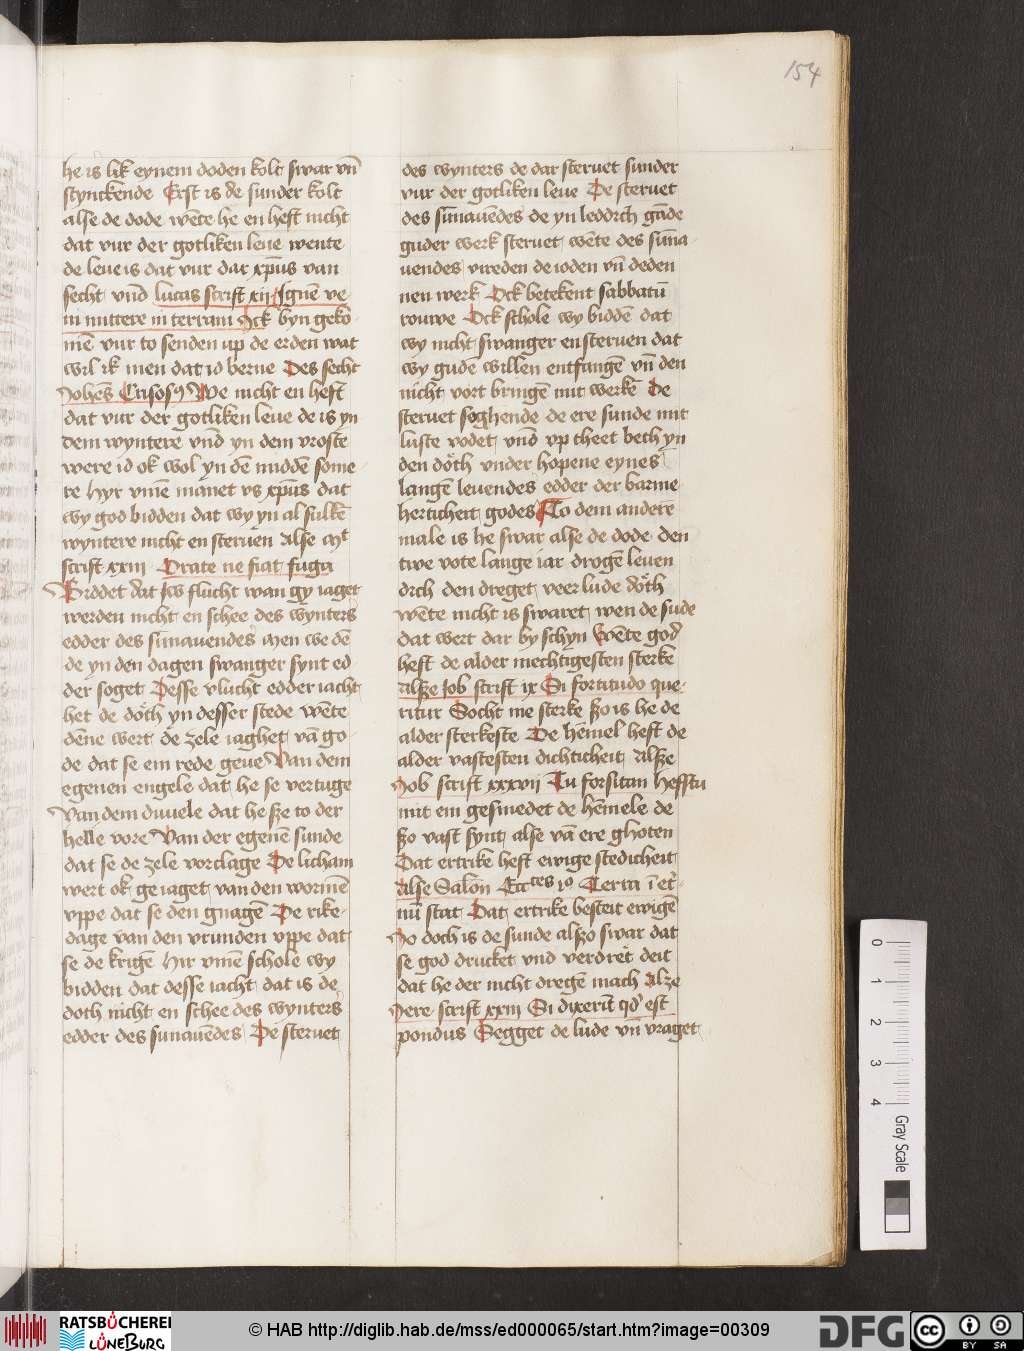 154
he is lik eynem doden kolt swar vn̄
stynckende Erst is de sunder kolt
alse de dode wēte he en heft nicht
dat vur der gotliken leue wente
de leue is dat vur dar xp̄us van
secht vnd lucas scrift xij Ignē ve
ni mittere in terram Ick byn gekō
mē vur to senden vp de erden wat
wil ik men dat id berne Des secht
Johēs Crisos We nicht en heft
dat vur der gotliken leue de is yn
dem wyntere vnd yn dem vroste
were id ok wol yn dē midden some
re Hyr vmē manet vs xp̄us dat
wy god bidden dat wy yn al sulkē
wyntere nicht en steruen Alse mt
scrift xxiiij Orate ne fiat fuga
Biddet dat iw flucht wan gy iaget
werden nicht en schee des wynters
edder des sunauendes Men we dē
de yn den dagen swanger synt ed
der soget Desse vlucht edder iacht
het de doͤth yn desser stede wēte
dēne wert de zele iaghet vā go
de dat se em rede geue Van dem
egenen engele dat he se vertuge
Van dem duuele dat he sze to der
helle vore Van der egenē sunde
dat se de zele vorclage De licham
wert ok geiaget van den wormē
vppe dat se den gnagē De rike
dage van den vrunden vppe dat
se de krige Hir vmē schole wy
bidden dat desse iacht dat is de
doth nicht en schee des wynters
edder des sunauēdes De steruet
des wynters de dar steruet sunder
vur der gotliken leue De steruet
des sunauēdes de yn leddich gāde
guder werk steruet wēte des suna
uendes vireden de ioden vn̄ deden
nen werk Ock betekent sabbatū
rouwe Ock schole wy biddē dat
wy nicht swanger en steruen dat
wy gudē willen entfangē vn̄ den
nicht vort bringē mit werkē De
steruet soghende de ere sunde mit
luste vodet vnd vp theet beth yn
den doͤth vnder hopene eynes
langē leuendes edder der barme
herticheit godes To dem anderē
male is he swar alse de dode den
twe vote lange iar drogē leuen
dich den dreget veer lude doͤth
wēte nicht is swarer wen de sude
dat wert dar by schyn Wēte god
heft de alder mechtigesten sterke
alsze Job scrift ix Si fortitudo que
ritur Socht me sterke szo is he de
alder sterkeste De hēmel heft de
alder vastesten dichticheit Alsze
Job scrift xxxvij Tu forsitan Hefftu
mit em gesmedet de hēmele de
szo vast synt alse vā ere ghoten
Dat ertrike heft ewige stedicheit
alse Salōn Ecctes io Terra ī et̄
nū stat Dat ertrike besteit ewige
Jo doch is de sunde alszo swar dat
se god drucket vnd verdret deit
dat he der nicht dregē mach Alze
Jere scrift xxiij Si dixerīt qd est
pondus Segget de lude vn̄ vraget
0 1 2 3 4
Gray Scale
RATSBÜCHEREI
LÜNEBURG
© HAB http://diglib.hab.de/mss/ed000065/start.htm?image=00309
DFG
cc BY SA